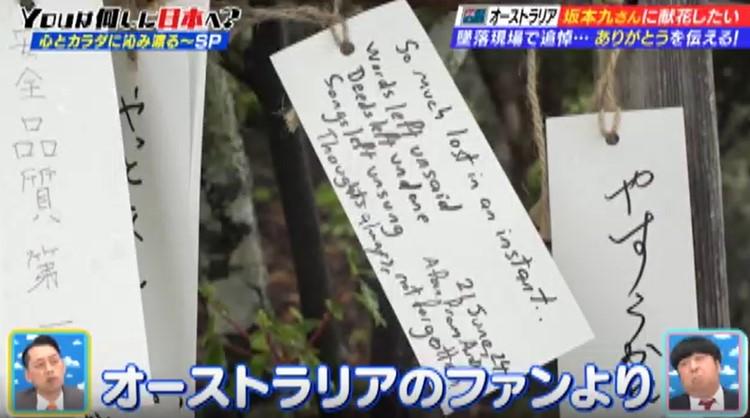 YOUは何しに日本へ?
心とカラダに沁み渡る〜SP
オーストラリア 坂本九さんに献花したい
墜落現場で追悼… ありがとうを伝える!
安全品質第一
So much lost in an instant..
Words left unsaid
Deeds left undone
Songs left unsung
Thoughts
not forgott
21 June 24
やすらか
オーストラリアのファンより